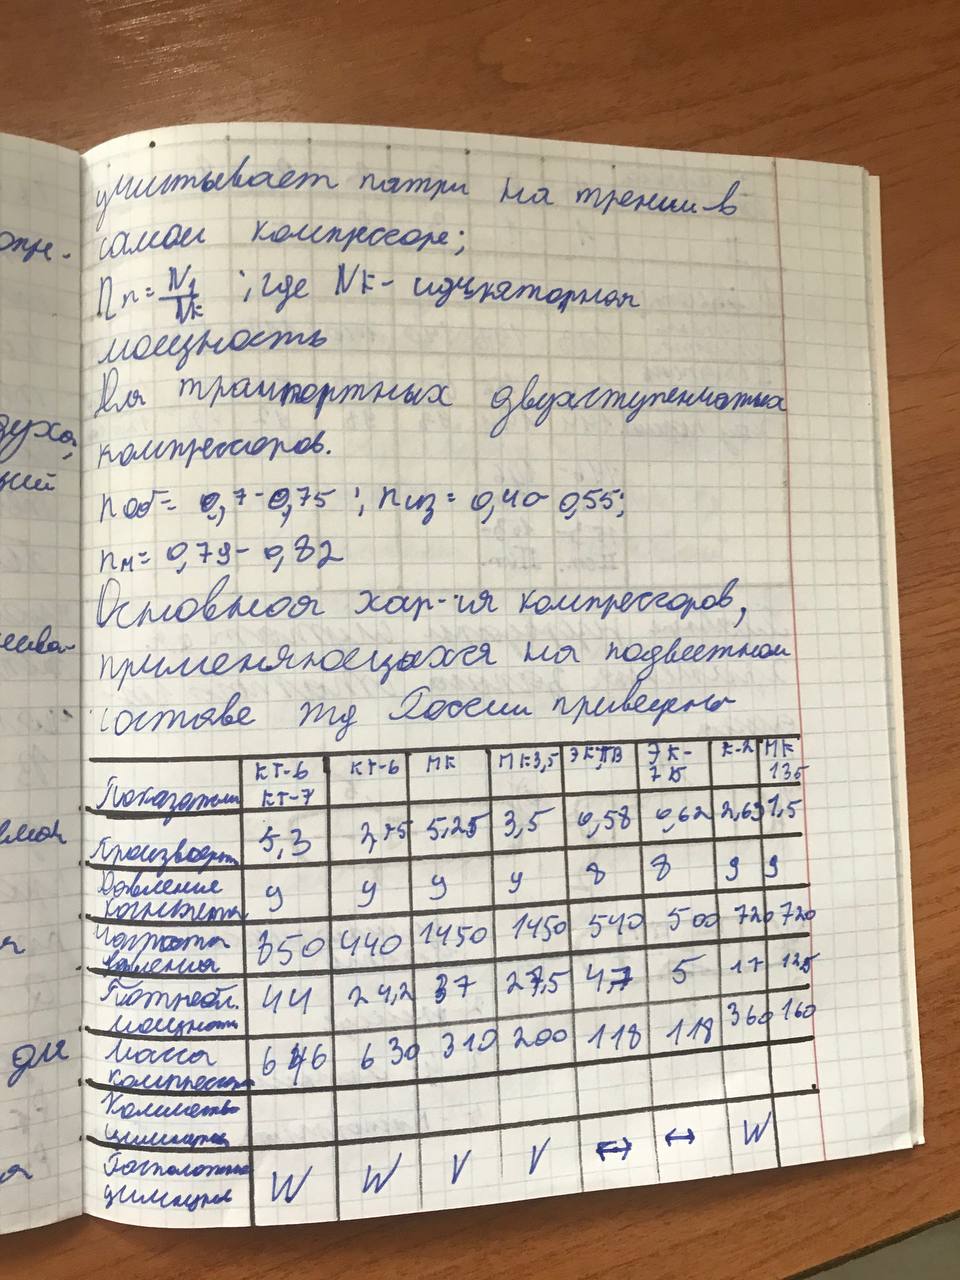 опр.
духа,
ций
ди
учитывает патри на трении в
самом компрессоре;
Пп = N1/Nк ; где Nк - идикаторная
мощность
Для транпортных двухступенчатых
компрессоров.
nоб = 0,7 - 0,75 ; nиз = 0,40 0,55;
nм = 0,79 - 0,82
Основная хар-ия компрессоров,
применяющихся на подвестном
составе жд России приведены
Показатели КТ-6 КТ-7 КТ-6 МК МК3,5 ЭК7В ЭК-7В К-2 МК 135
Производит 5,3 2,75 5,25 3,5 0,58 0,62 2,63 1,5
Давление нагнетат 9 9 9 9 8 8 9 9
Частота вращения 350 440 1450 1450 540 500 720 720
Потребл. мощности 44 24,2 37 27,5 4,7 5 17 12,5
Масса компрессора 646 630 310 200 118 118 360 160
Количество цилиндров
Расположение цилиндров W W V V ↔ ↔ W